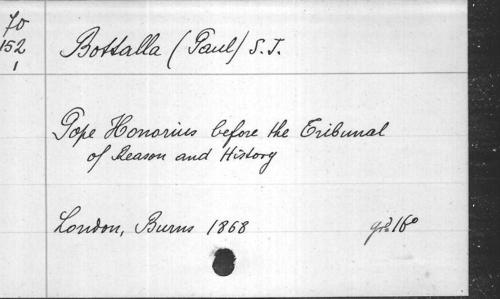 70
152
1
Bottalla (Paul) S.J.
Pope Honorius before the Tribunal
of Reason and History
London, Burns 1868 16°